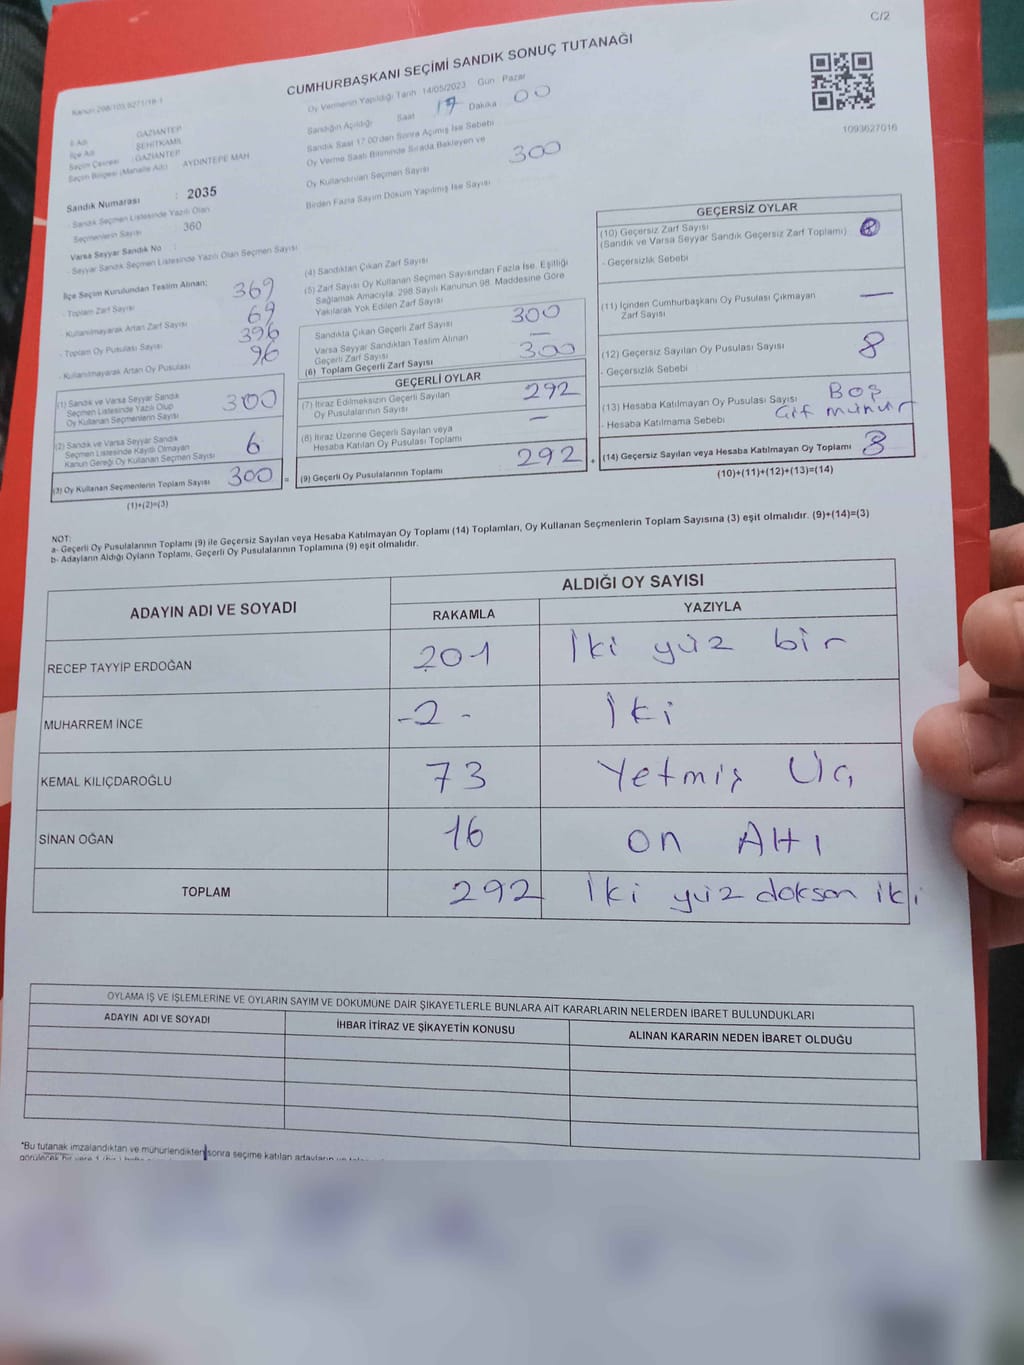 C/2
CUMHURBAŞKANI SEÇİMİ SANDIK SONUÇ TUTANAĞI
1093627016
Oy Vermenin Yapıldığı Tarih 14/05/2023 Gün Pazar
Sandığın Açıldığı Saat 17 Dakika 00
Sandık Saat 17:00'den Sonra Açılmış İse Sebebi
Oy Verme Saati Bitiminde Sırada Bekleyen ve
Oy Kullandırılan Seçmen Sayısı 300
Birden Fazla Sayım Döküm Yapılmış İse Sayısı
İl Adı : GAZİANTEP
İlçe Adı : ŞEHİTKAMİL
Seçim Çevresi : GAZİANTEP
Seçim Bölgesi (Mahalle Adı) : AYDINTEPE MAH.
Sandık Numarası : 2035
- Sandık Seçmen Listesinde Yazılı Olan
Seçmenlerin Sayısı 360
Varsa Seyyar Sandık No :
- Seyyar Sandık Seçmen Listesinde Yazılı Olan Seçmen Sayısı
İlçe Seçim Kurulundan Teslim Alınan;
- Toplam Zarf Sayısı 369
- Kullanılmayarak Artan Zarf Sayısı 69
- Toplam Oy Pusulası Sayısı 396
- Kullanılmayarak Artan Oy Pusulası 96
(1) Sandık ve Varsa Seyyar Sandık
Seçmen Listesinde Yazılı Olup
Oy Kullanan Seçmenlerin Sayısı 300
(2) Sandık ve Varsa Seyyar Sandık
Seçmen Listesinde Kayıtlı Olmayan
Kanun Gereği Oy Kullanan Seçmen Sayısı 6
(3) Oy Kullanan Seçmenlerin Toplam Sayısı 300 =
(1)+(2)=(3)
(4) Sandıktan Çıkan Zarf Sayısı
(5) Zarf Sayısı Oy Kullanan Seçmen Sayısından Fazla İse, Eşitliği
Sağlamak Amacıyla, 298 Sayılı Kanunun 98. Maddesine Göre
Yakılarak Yok Edilen Zarf Sayısı
Sandıkta Çıkan Geçerli Zarf Sayısı 300
Varsa Seyyar Sandıktan Teslim Alınan
Geçerli Zarf Sayısı —
(6) Toplam Geçerli Zarf Sayısı 300
GEÇERLİ OYLAR
(7) İtiraz Edilmeksizin Geçerli Sayılan
Oy Pusulalarının Sayısı 292
(8) İtiraz Üzerine Geçerli Sayılan veya
Hesaba Katılan Oy Pusulası Toplamı —
(9) Geçerli Oy Pusulalarının Toplamı : 292 +
GEÇERSİZ OYLAR
(10) Geçersiz Zarf Sayısı
(Sandık ve Varsa Seyyar Sandık Geçersiz Zarf Toplamı)
- Geçersizlik Sebebi
(11) İçinden Cumhurbaşkanı Oy Pusulası Çıkmayan —
Zarf Sayısı
(12) Geçersiz Sayılan Oy Pusulası Sayısı 8
- Geçersizlik Sebebi
(13) Hesaba Katılmayan Oy Pusulası Sayısı Boş
- Hesaba Katılmama Sebebi
(14) Geçersiz Sayılan veya Hesaba Katılmayan Oy Toplamı 8
(10)+(11)+(12)+(13)=(14)
NOT:
a- Geçerli Oy Pusulalarının Toplamı (9) ile Geçersiz Sayılan veya Hesaba Katılmayan Oy Toplamı (14) Toplamları, Oy Kullanan Seçmenlerin Toplam Sayısına (3) eşit olmalıdır. (9)+(14)=(3)
b- Adayların Aldığı Oyların Toplamı, Geçerli Oy Pusulalarının Toplamına (9) eşit olmalıdır.
ADAYIN ADI VE SOYADI ALDIĞI OY SAYISI
RAKAMLA YAZIYLA
RECEP TAYYİP ERDOĞAN 201 İki yüz bir
MUHARREM İNCE -2- İki
KEMAL KILIÇDAROĞLU 73 Yetmiş Üç
SİNAN OĞAN 16 on Altı
TOPLAM 292 İki yüz doksan iki
OYLAMA İŞ VE İŞLEMLERİNE VE OYLARIN SAYIM VE DÖKÜMÜNE DAİR ŞİKAYETLERLE BUNLARA AİT KARARLARIN NELERDEN İBARET BULUNDUKLARI
ADAYIN ADI VE SOYADI İHBAR İTİRAZ VE ŞİKAYETİN KONUSU ALINAN KARARIN NEDEN İBARET OLDUĞU
*Bu tutanak imzalandıktan ve mühürlendikten sonra seçime katılan adayların